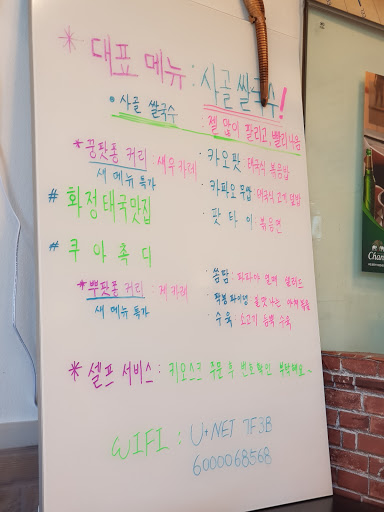 * 대표 메뉴 : 사골 쌀국수!
• 사골 쌀국수 : 젤 많이 팔리고, 빨리 나옴
* 꿍팟퐁 커리 : 새우카레
새 메뉴 특가
• 카오팟 태국식 볶음밥
• 카파오 무쌉 : 태국식 고기 덮밥
# 화정태국맛집
• 팟타이 : 볶음면
# 쿠아촉디
* 뿌팟퐁 커리 : 게 카레
새 메뉴 특가
• 쏨땀 : 파파야 열매 샐러드
• 수육 : 소고기 수육
* 셀프 서비스 : 키오스크 주문 후 번호 확인 부탁해요~
WIFI : U+NET 7F3B
6000068568
Chang